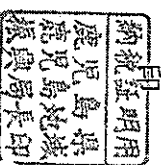 納税証明用
鹿児島県
鹿児島地域
振興局長印